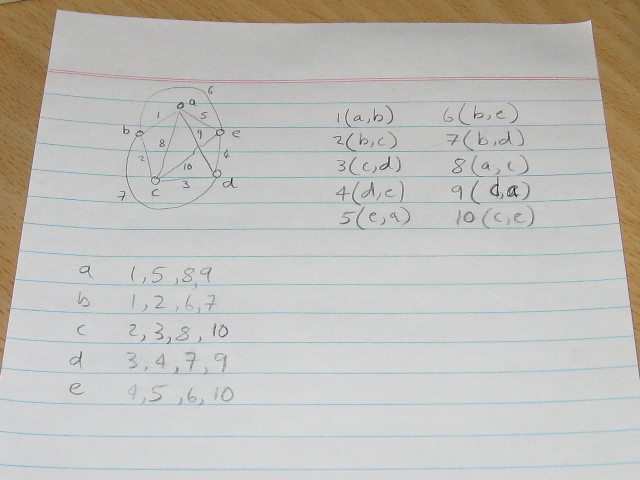 6
a
1 5
b 9 e
2 8 4
10
c 3 d
7
1(a,b) 6(b,e)
2(b,c) 7(b,d)
3(c,d) 8(a,c)
4(d,e) 9(d,a)
5(e,a) 10(c,e)
a 1,5,8,9
b 1,2,6,7
c 2,3,8,10
d 3,4,7,9
e 4,5,6,10